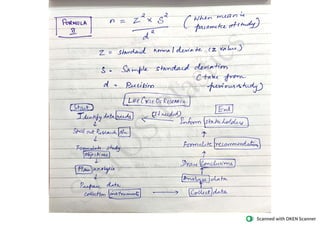 FORMULA II
n = Z² × S² / d²
(When mean is parameter of study)
Z = standard normal deviate (Z value)
S = Sample standard deviation
(take from previous study)
d = Precision
LIFE CYCLE OF RESEARCH
Start
End
Identify data needs
(If needed)
Inform stakeholders
Spell out Research
Formulate recommendation
Formulate study objectives
Plan analysis
Draw Conclusions
Analyse data
Prepare data collection instrument
Collect data
Scanned with OKEN Scanner